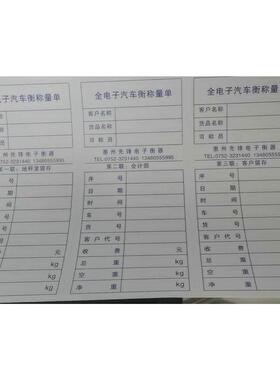 电子汽车衡称量单
户名称
品名称
磅员
惠州先锋电子衡器
TEL:0752-3231440 13480555990
第一联：地秤室留存
号
期
间
号
户代号
费 元
重 kg
重 kg
重 kg
全电子汽车衡称量单
客户名称
货品名称
司磅员
惠州先锋电子衡器
TEL:0752-3231440 13480555990
第二联：会计留
序号
日期
时间
车号
客户代号
收费 元
总重 kg
空重 kg
净重 kg
全电子汽车衡称量单
客户名称
货品名称
司磅员
惠州先锋电子衡器
TEL:0752-3231440 13480555990
第三联：客户留存
序号
日期
时间
车号
客户代号
收费
总重
空重
净重